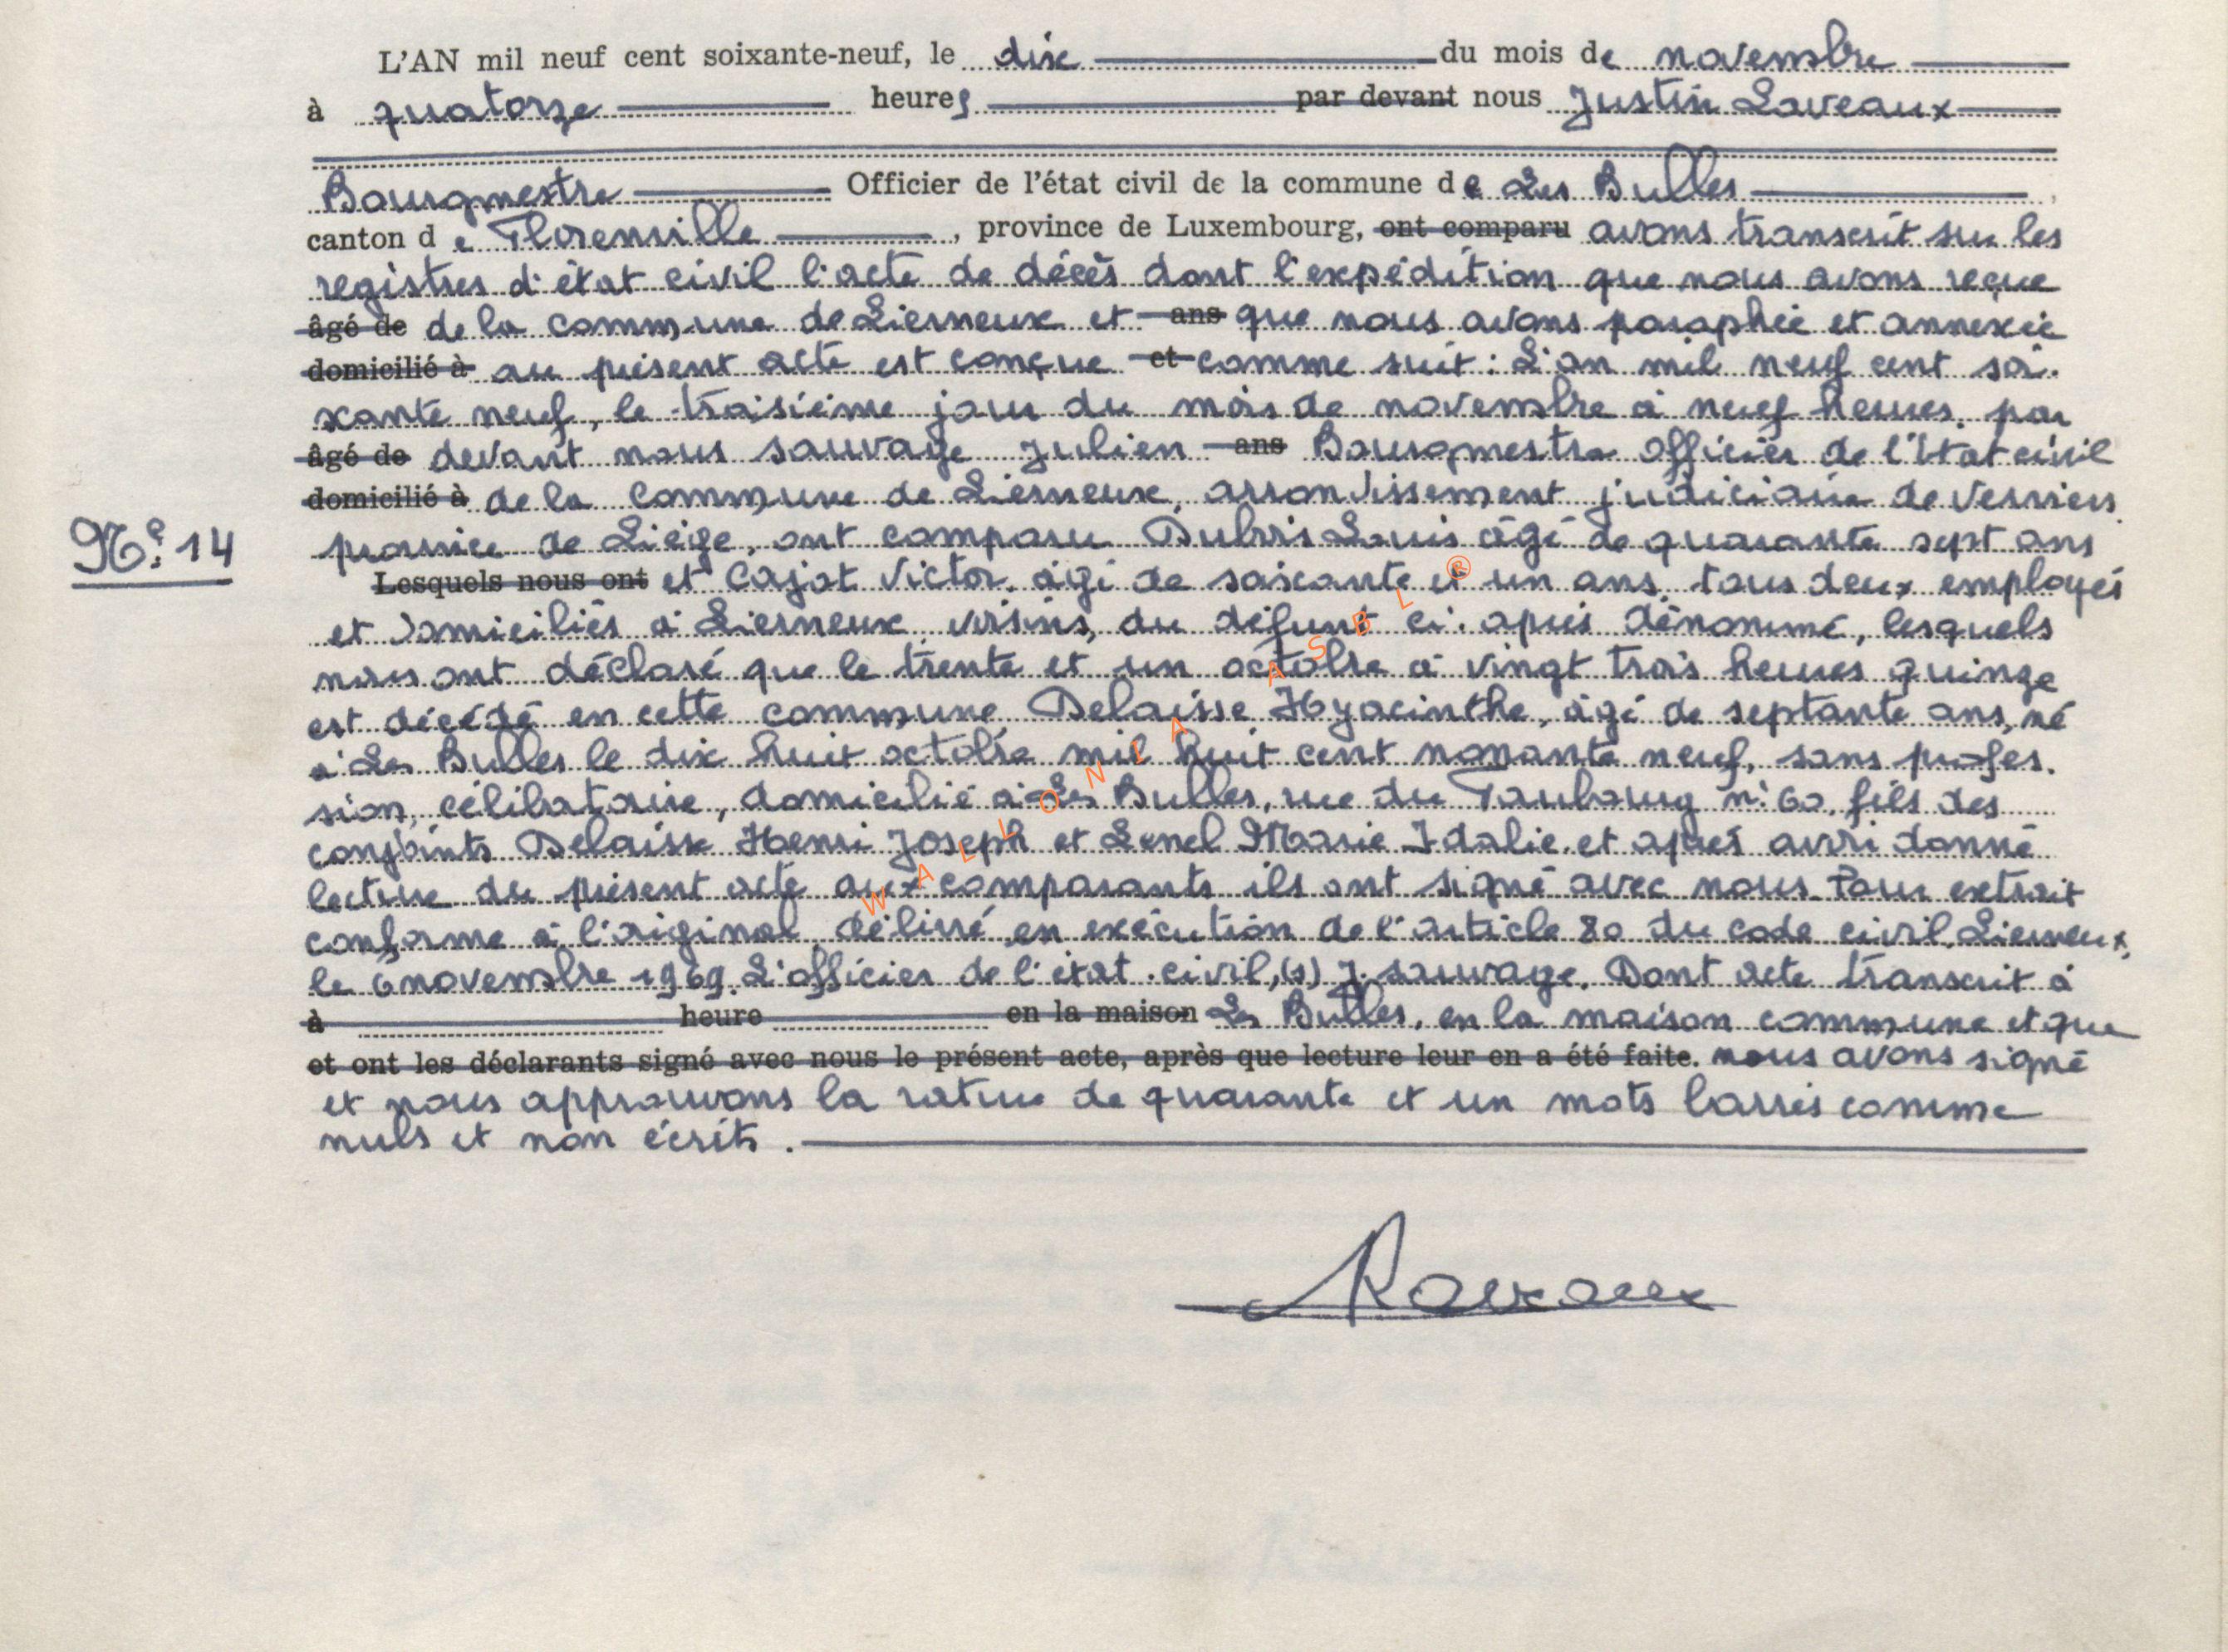 L'AN mil neuf cent soixante-neuf, le dix du mois de novembre
à quatorze heures par devant nous Justin Laveaux
Bourgmestre Officier de l'état civil de la commune de Les Bulles,
canton de Florenville, province de Luxembourg, ont comparu avons transcrit sur les
registres d'état civil l'acte de décès dont l'expédition que nous avons reçue
âgé de de la commune de Lierneux et ans que nous avons paraphée et annexée
domicilié à au présent acte est conçue et comme suit : L'an mil neuf cent soi-
xante neuf, le troisième jour du mois de novembre à neuf heures, par
âgé de devant nous Sauvage Julien ans Bourgmestre officier de l'état civil
domicilié à de la commune de Lierneux, arrondissement judiciaire de Verviers
N° 14 province de Liège, ont comparu Dubois Louis âgé de quarante sept ans
Lesquels nous ont et Cajot Victor, âgé de soixante et un ans, tous deux employés
et domiciliés à Lierneux, voisins, du défunt ci-après dénommé, lesquels
nous ont déclaré que le trente et un octobre à vingt trois heures quinze
est décédé en cette commune Delaisse Hyacinthe, âgé de septante ans, né
à Les Bulles le dix huit octobre mil huit cent nonante neuf, sans profes-
sion, célibataire, domicilié à Les Bulles, rue du Faubourg n° 60, fils des
conjoints Delaisse Henri Joseph et Lenel Marie Idalie, et après avoir donné
lecture du présent acte aux comparants ils ont signé avec nous. Pour extrait
conforme à l'original délivré en exécution de l'article 80 du code civil, Lierneux,
le 6 novembre 1969. L'officier de l'état-civil, (s) J. Sauvage. Dont acte transcrit à
à heure en la maison Les Bulles, en la maison commune et que
et ont les déclarants signé avec nous le présent acte, après que lecture leur en a été faite. nous avons signé
et nous approuvons la rature de quarante et un mots barrés comme
nuls et non écrits.
WALLONIA ASBL ®